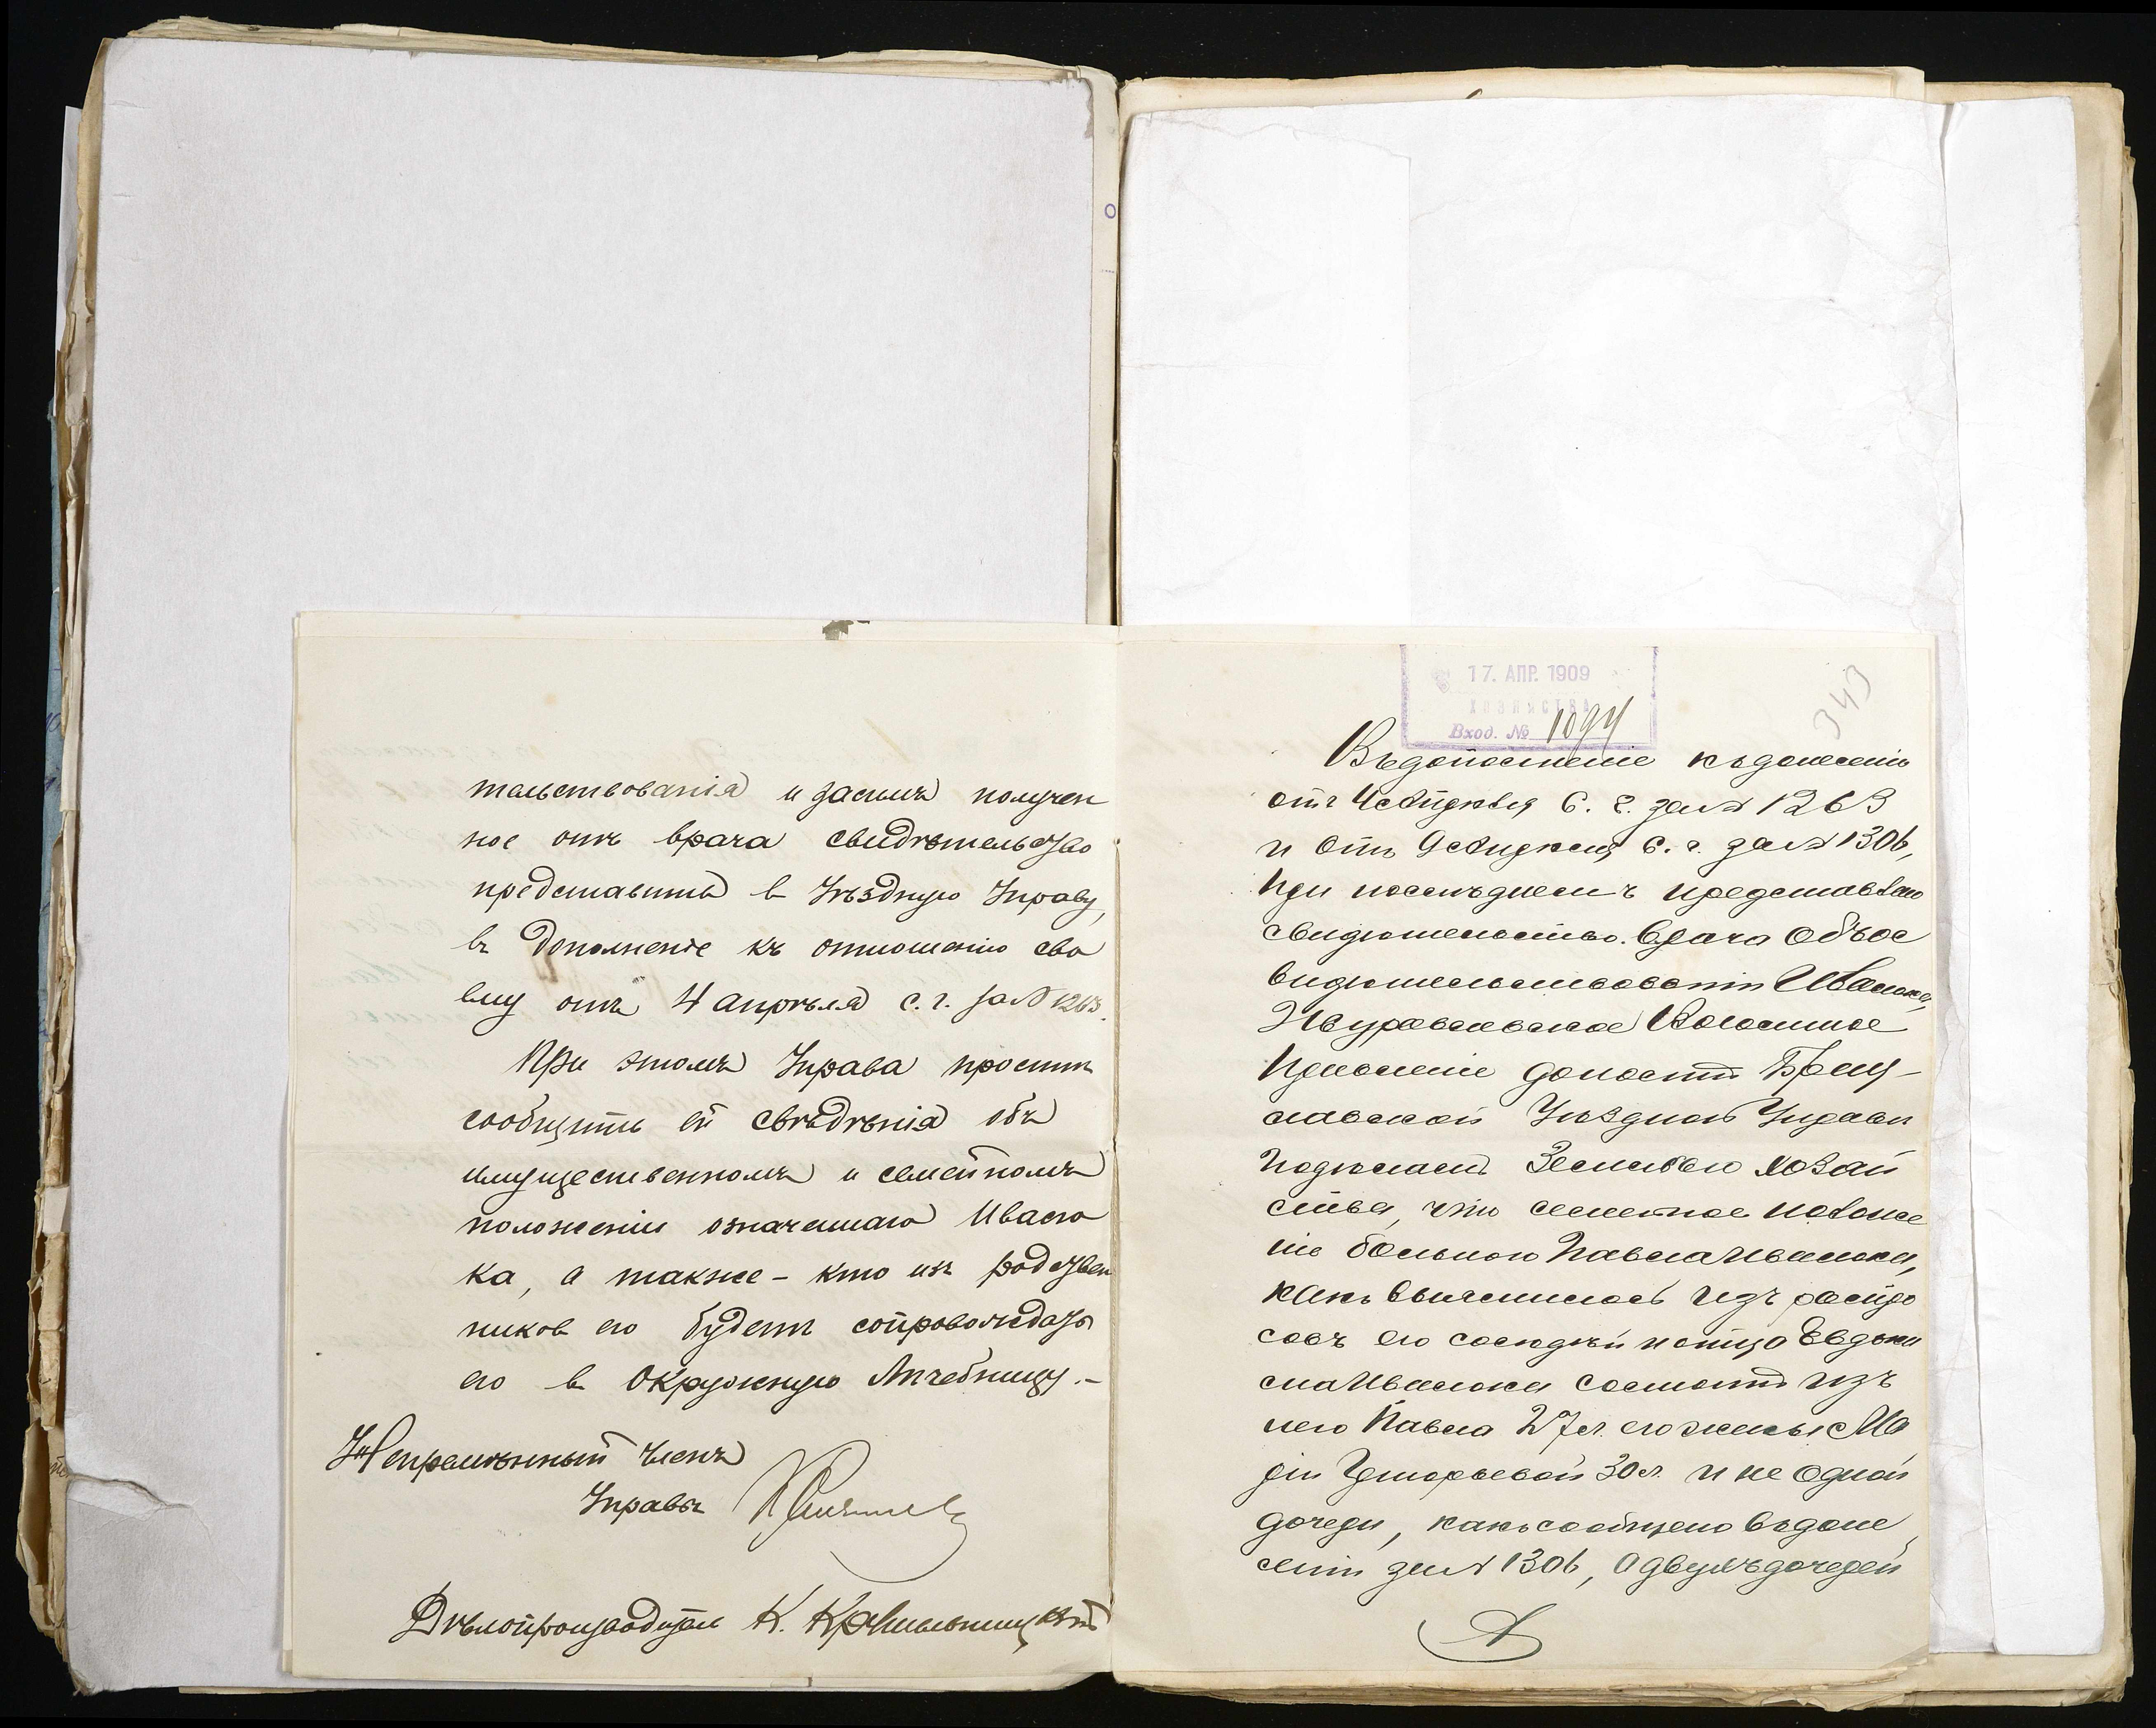 тельствованія и засимъ получен
ное отъ врача свидѣтельство
представить въ Уѣздную Управу,
въ дополненіе къ отношенію сво
ему отъ 4 апрѣля с. г. за № 1263.
При этомъ Управа проситъ
сообщить ей свѣдѣнія объ
имущественномъ и семейномъ
положеніи означеннаго Иваню
ка, а также - кто изъ родствен
никовъ его будетъ сопровождать
его въ Окружную Лѣчебницу.-
Непремѣнный Членъ
Управы
Дѣлопроизводитель К.
17. АПР. 1909
ХОЗЯЙСТВА
Вход. № 1094
343
Въ дополненіе къ донесенію
отъ 4 Апрѣля с. г. за № 1263
и отъ 9 Апрѣля с. г. за № 1306,
при послѣднемъ представлено
свидѣтельство врача объ ос
видѣтельствованіи Иванюка,
Волостное
Правленіе доноситъ Брац-
лавской Уѣздной Управѣ
по дѣламъ Земскаго Хозяй
ства, что семейное положе
ніе больного Павла Иванюка,
какъ выяснилось изъ распро
совъ его сосѣдей и отца Евдоки
ма Иванюка состоитъ изъ
него Павла 27 л. его жены Ма
ріи Григорьевой 30 л. и не одной
дочери, какъ сообщено въ доне
сеніи за № 1306, а двухъ дочерей